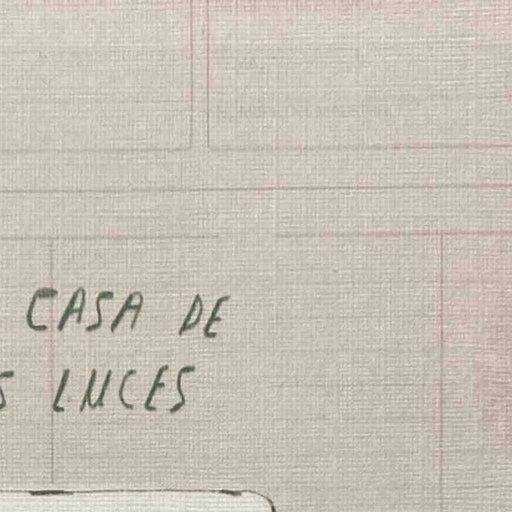 CASA DE
S LUCES